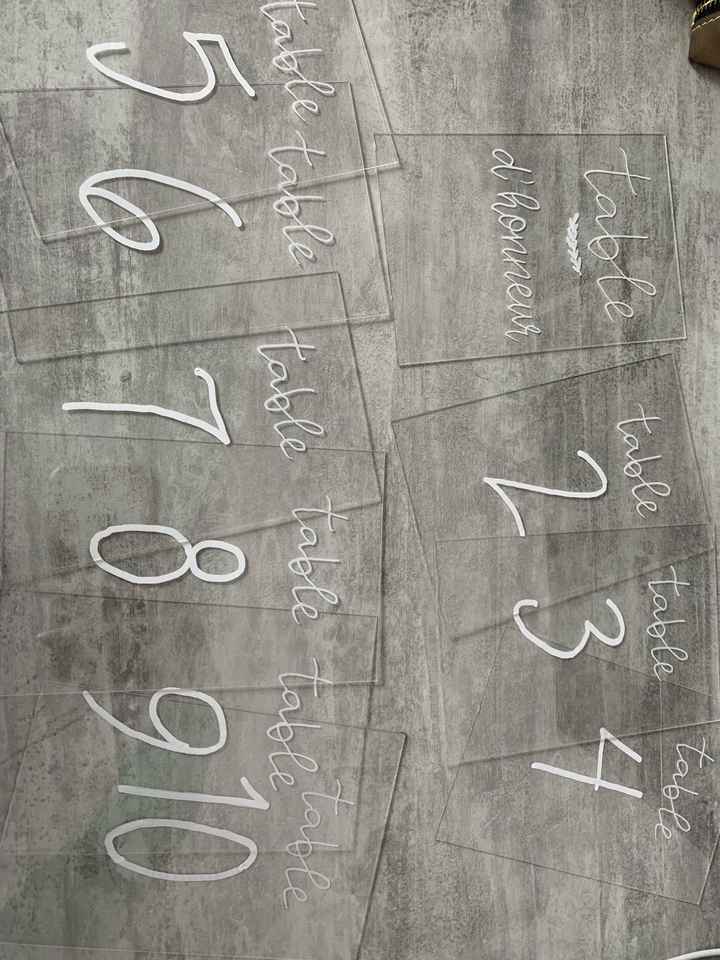 table
d'honneur
table
2
table
3
table
4
table
5
table
6
table
7
table
8
table
9
table
10